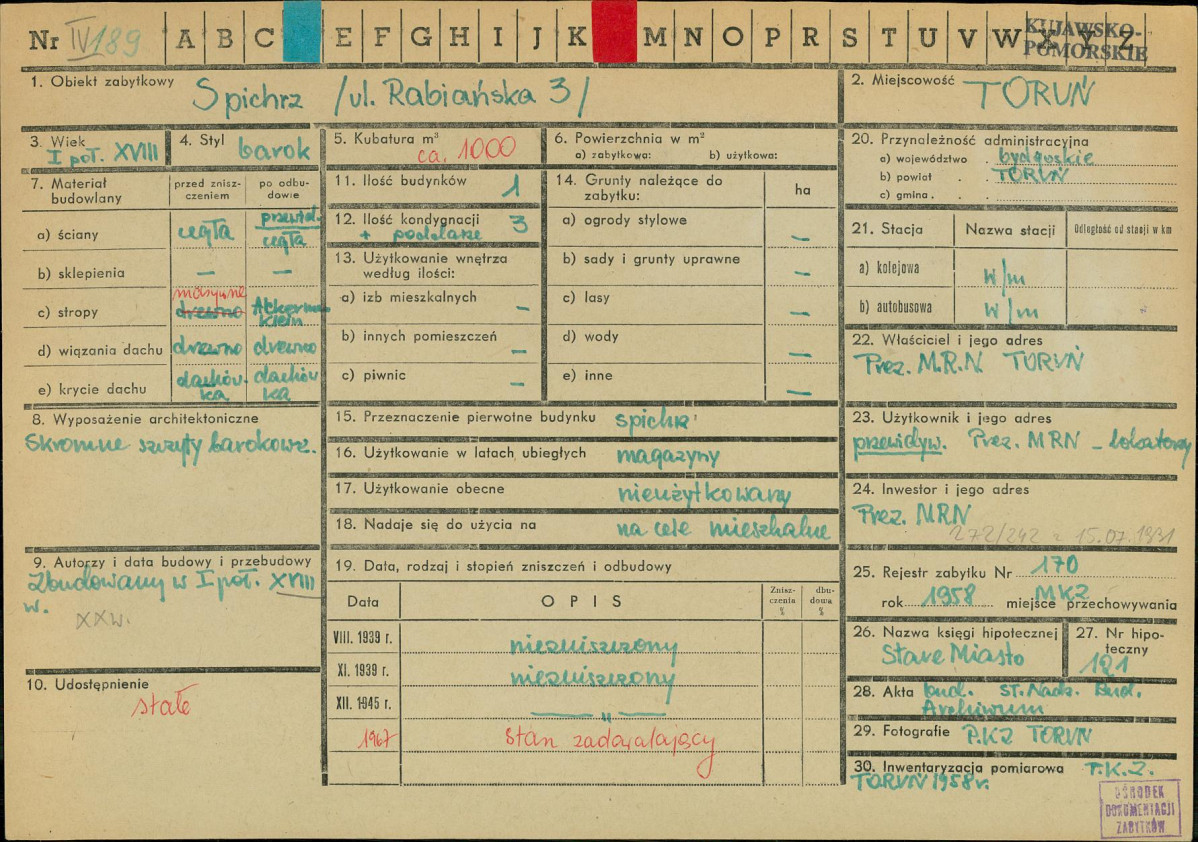 Nr IV/189 A B C E F G H I J K M N O P R S T U V W X Y Z
KUJAWSKO-
POMORSKIE
1. Obiekt zabytkowy Spichrz /ul. Rabiańska 3/
2. Miejscowość TORUŃ
3. Wiek I poł. XVIII
4. Styl barok
5. Kubatura m³ ca. 1000
6. Powierzchnia w m²
a) zabytkowa: b) użytkowa:
7. Materiał budowlany
przed znisz-
czeniem
po odbu-
dowie
a) ściany cegła przewid. cegła
b) sklepienia — —
c) stropy masywne drewno Ackerman Klein
d) wiązania dachu drewno drewno
e) krycie dachu dachów-
ka dachów-
ka
8. Wyposażenie architektoniczne
Skromne szczyty barokowe.
9. Autorzy i data budowy i przebudowy
Zbudowany w I poł. XVIII
w.
XXw.
10. Udostępnienie
stałe
11. Ilość budynków 1
12. Ilość kondygnacji 3
+ poddasze
13. Użytkowanie wnętrza
według ilości:
a) izb mieszkalnych —
b) innych pomieszczeń —
c) piwnic —
14. Grunty należące do
zabytku:
ha
a) ogrody stylowe —
b) sady i grunty uprawne —
c) lasy —
d) wody —
e) inne —
15. Przeznaczenie pierwotne budynku spichrz
16. Użytkowanie w latach ubiegłych magazyny
17. Użytkowanie obecne nieużytkowany
18. Nadaje się do użycia na na cele mieszkalne
19. Data, rodzaj i stopień zniszczeń i odbudowy
Data OPIS Znisz-
czenia
% dbu-
dowa
%
VIII. 1939 r. niezniszczony
XI. 1939 r. niezniszczony
XII. 1945 r. — " —
1967 stan zadawalający
20. Przynależność administracyjna
a) województwo . bydgoskie
b) powiat . . TORUŃ
c) gmina . . .
21. Stacja Nazwa stacji Odległość od stacji w km
a) kolejowa w/m
b) autobusowa w/m
22. Właściciel i jego adres
Prez. M.R.N. TORUŃ
23. Użytkownik i jego adres
przewidyw. Prez. MRN – lokatorzy
24. Inwestor i jego adres
Prez. MRN
272/242 z 15.07.1931
25. Rejestr zabytku Nr 170
rok 1958 miejsce przechowywania MKZ
26. Nazwa księgi hipotecznej
Stare Miasto
27. Nr hipo-
teczny
121
28. Akta bud. ST. Nadz. Bud.
Archiwum
29. Fotografie P.K.Z TORUŃ
30. Inwentaryzacja pomiarowa P.K.Z.
TORUŃ 1958r.
OŚRODEK
DOKUMENTACJI
ZABYTKÓW